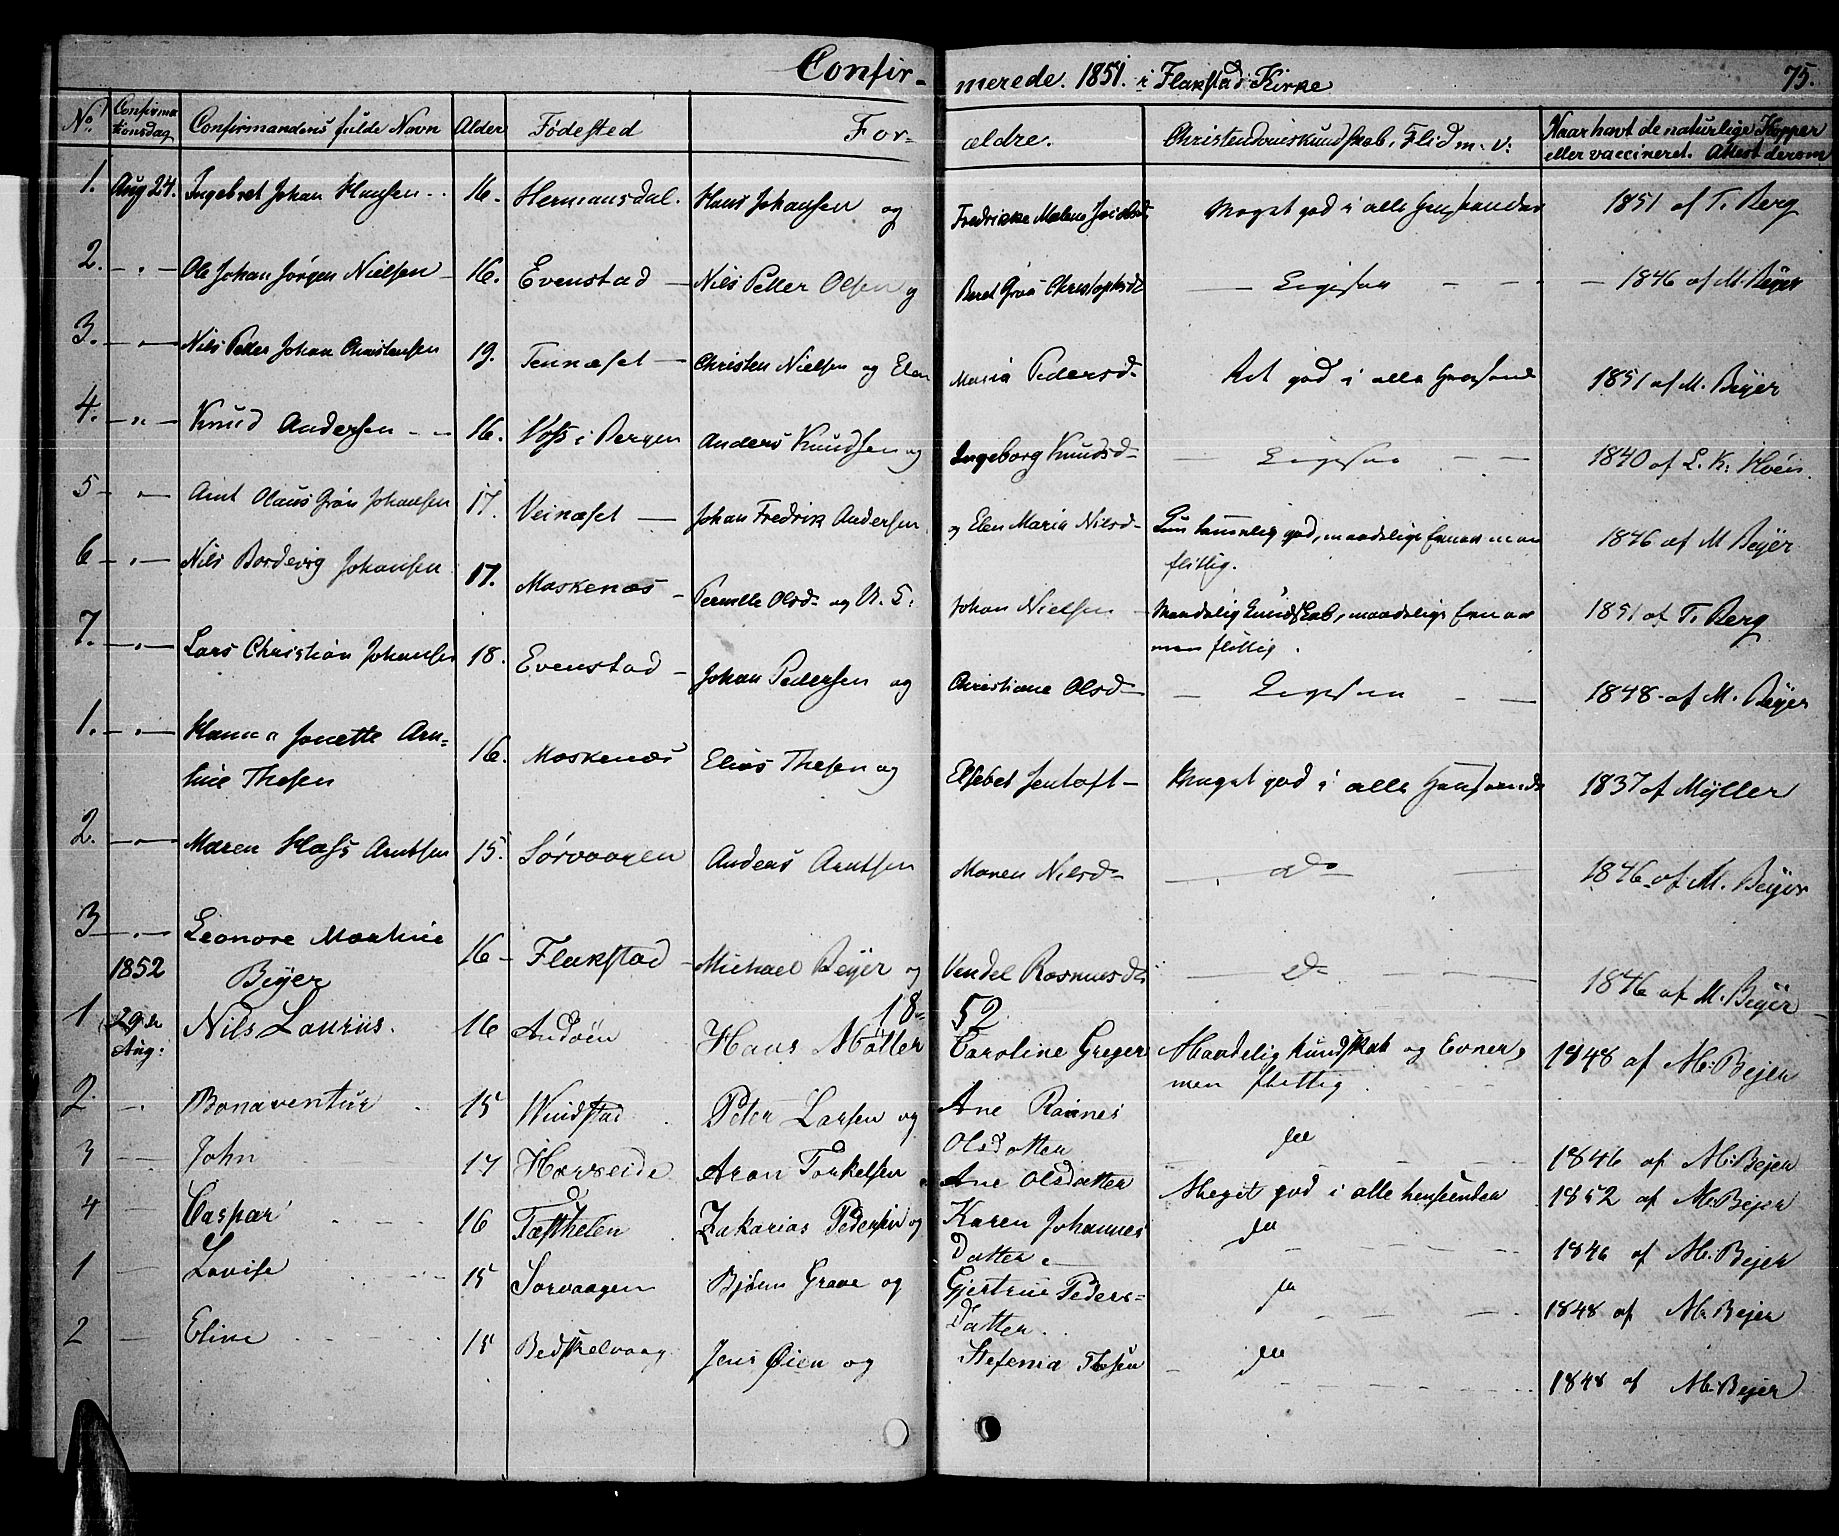 Confirmerede. 1851. i Flakstad Kirke 75.
No. Confirmationsdag Confirmandens fulde Navn Alder Fødested Forældre. Christendomskundskab, Flid m. v. Naar havt de naturlige Kopper
eller vaccineret. Attest derom
1. Aug 24. Ingebret Johan Hansen 16. Hermansdal. Hans Johansen og Fredrikke Malene Meget god i alle Henseender 1851 af T. Berg
2. Ole Johan Jørgen Nielsen 16. Evenstad Nils Petter Olsen og Beret Christophsd. Ligesaa 1846 af M. Beÿer
3. Nils Peder Johan Christensen 19. Tennæset Christen Nielsen og Elen Maria Pedersd. Ret god i alle 1851 af M. Beÿer
4. Knud Andersen 16. Voss i Bergen Anders Knudsen og Ingeborg Knudsd. Ligesaa 1840 af L. K.
5 Arnt Olaus Grøn Johansen 17. Veinæset Johan Fredrik Andersen og Elen Maria Nilsd. temmelig god, maadelige Evner men
flittig. 1846 af M Beÿer
6 Nils Bordevig Johansen 17. Moskenæs Pernille Olsd. og U. S. Johan Nielsen Maadelig Kundskab, maadelige Evner
men flittig. 1851 af T. Berg
7. Lars Christian Johansen 18. Evenstad Johan Pedersen og Christiane Olsd. Ligesaa 1848 af M. Beÿer
1. Hanna Jonette Arn-
tine Thesen 16. Moskenæs Elias Thesen og Elsebet Jentoft Meget god i alle Henseende 1837 af Mÿller
2. Maren Hass Arntsen 15. Sørvaagen Anders Arntsen Maren Nilsd. do 1846 af M. Beÿer
3 Leonore Martine
Beÿer 16 Flakstad Michael Beÿer og Vendel Rasmusd. do 1846 af M. Beÿer
1852 1852
1 29de Aug: Nils Laurius. 16 Andøen Hans Møller Caroline Greger Maadelig kundskab og Evner,
men flittig. 1848 af M. Bejer
2. Bonaventur 15 Windstad Peter Larsen og Ane
Olsdatter 1846 af M. Bejer
3 John 17 Horseide Aron Torkelsen Ane Olsdatter Meget god i alle henseender 1852 af M. Bejer
4 Caspar 16 Zakarias Pedersen og Karen Johannes
Datter 1846 af M. Bejer
1 Lovise 15 Sorvaagen Bjørn Grave og Gjertrue Peders-
Datter. 1848 af M. Bejer
2 Eline 15 Jens Øien og Stefenia Thesen 1848 af M. Bejer